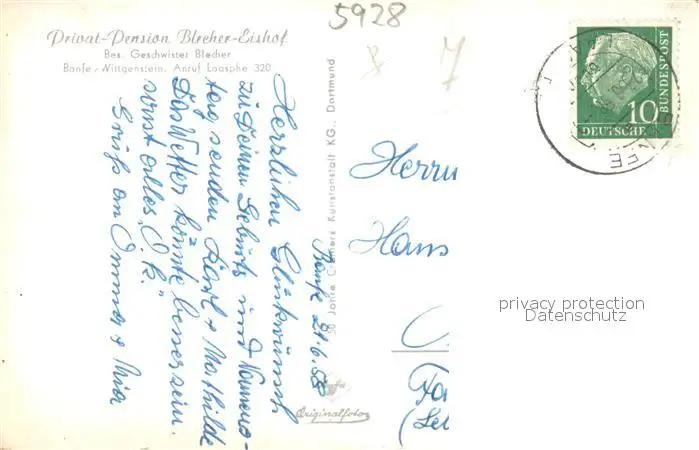 5928
Privat-Pension Blecher-Eishof
Bes. Geschwister Blecher
Banfe/Wittgenstein, Anruf Laasphe 320
Banfe 21.6.58
Herzlichen Glückwunsch
zu Deinem Geburts und Namens-
tag senden Karl + Mathilde
Das Wetter könnte besser sein.
sonst alles „O.K."
Gruß an Omma + Mia
50 Jahre Cramers Kunstanstalt KG., Dortmund
Originalfoto
7
10
DEUTSCHE
BUNDESPOST
Herrn
Hans
privacy protection
Datenschutz
Fa
(Le